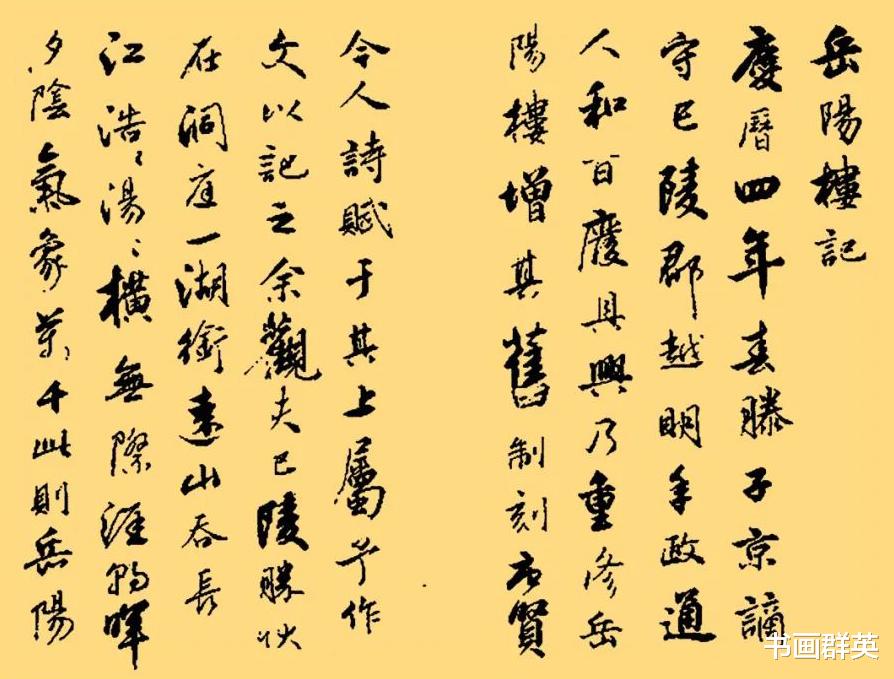 岳陽樓記
慶曆四年春滕子京謫
守巴陵郡越明年政通
人和百廢具興乃重修岳
陽樓增其舊制刻唐賢
今人詩賦于其上屬予作
文以記之余觀夫巴陵勝狀
在洞庭一湖銜遠山吞長
江浩〻湯〻橫無際涯朝暉
夕陰氣象萬千此則岳陽
书画群英